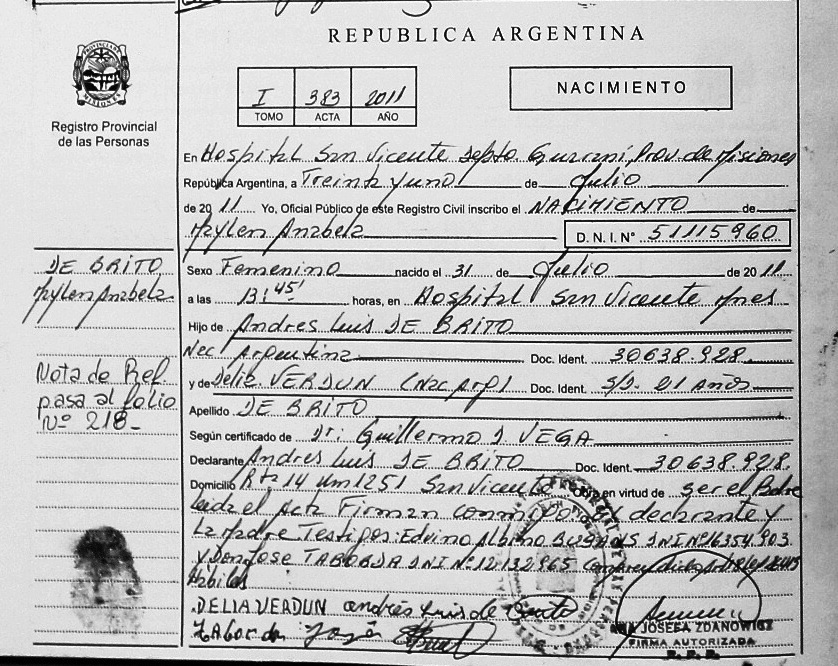 REPUBLICA ARGENTINA
PROVINCIA DE MISIONES
Registro Provincial
de las Personas
I 383 2011
TOMO ACTA AÑO
NACIMIENTO
En Hospital San Vicente Depto. Guarani, Prov. de Misiones
República Argentina, a Treinta y uno de Julio
de 2011 Yo, Oficial Público de este Registro Civil inscribo el NACIMIENTO de
Maylen Anabela D. N. I. N° 51115960
DE BRITO
Maylen Anabela
Nota de Ref
pasa al folio
Nº 218-
Sexo Femenino nacido el 31 de Julio de 2011
a las 13:45' horas, en Hospital San Vicente Mnes
Hijo de Andres Luis DE BRITO
Nac Argentina Doc. Ident. 30638.928.
y de Delia VERDUN (Nac Arg) Doc. Ident. S/D. 21 años
Apellido DE BRITO
Según certificado de Dr: Guillermo D. VEGA
Declarante Andres Luis DE BRITO Doc. Ident. 30638.928.
Domicilio Rta 14 Km 1251 San Vicente Obra en virtud de ser el Padre
leida el Acta Firman conmigo el declarante y
La Madre Testigos: Edvino Albino DNI Nº 16354.903
y Don Jose TABORDA DNI Nº 12132965
habiles
DELIA VERDUN andrés Luis de Brito
Taborda José
ANA JOSEFA ZDANOWICZ
FIRMA AUTORIZADA
R.P.P.